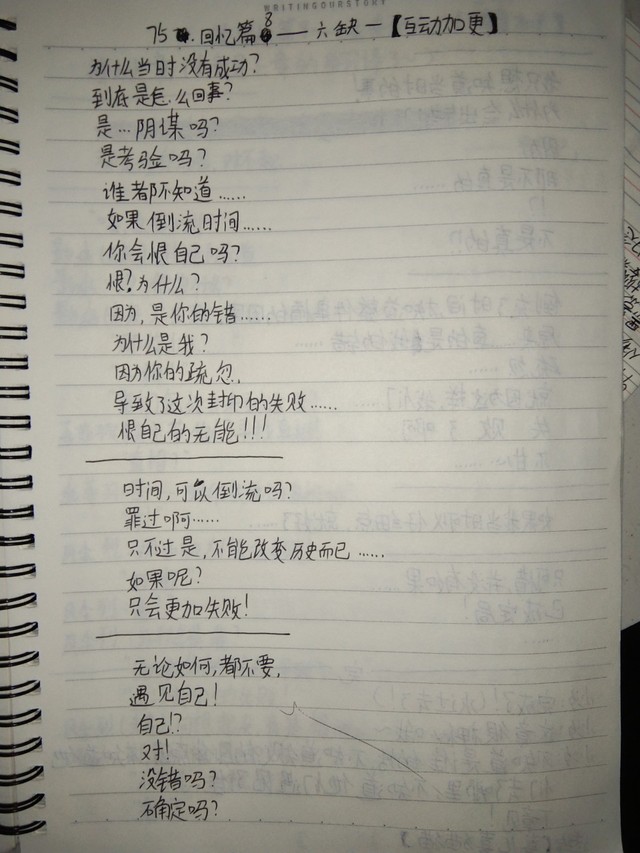 WRITINGOURSTORY
75.回忆篇8——六缺一【互动加更】
为什么当时没有成功?
到底是怎么回事?
是…阴谋吗?
是考验吗?
谁都不知道……
如果倒流时间……
你会恨自己吗?
恨?为什么?
因为,是你的错……
为什么是我?
因为你的疏忽,
导致了这次封印的失败……
恨自己的无能!!!
时间,可以倒流吗?
罪过啊……
只不过是,不能改变历史而已……
如果呢?
只会更加失败!
无论如何,都不要,
遇见自己!
自己!?
对!
没错吗?
不确定吗?